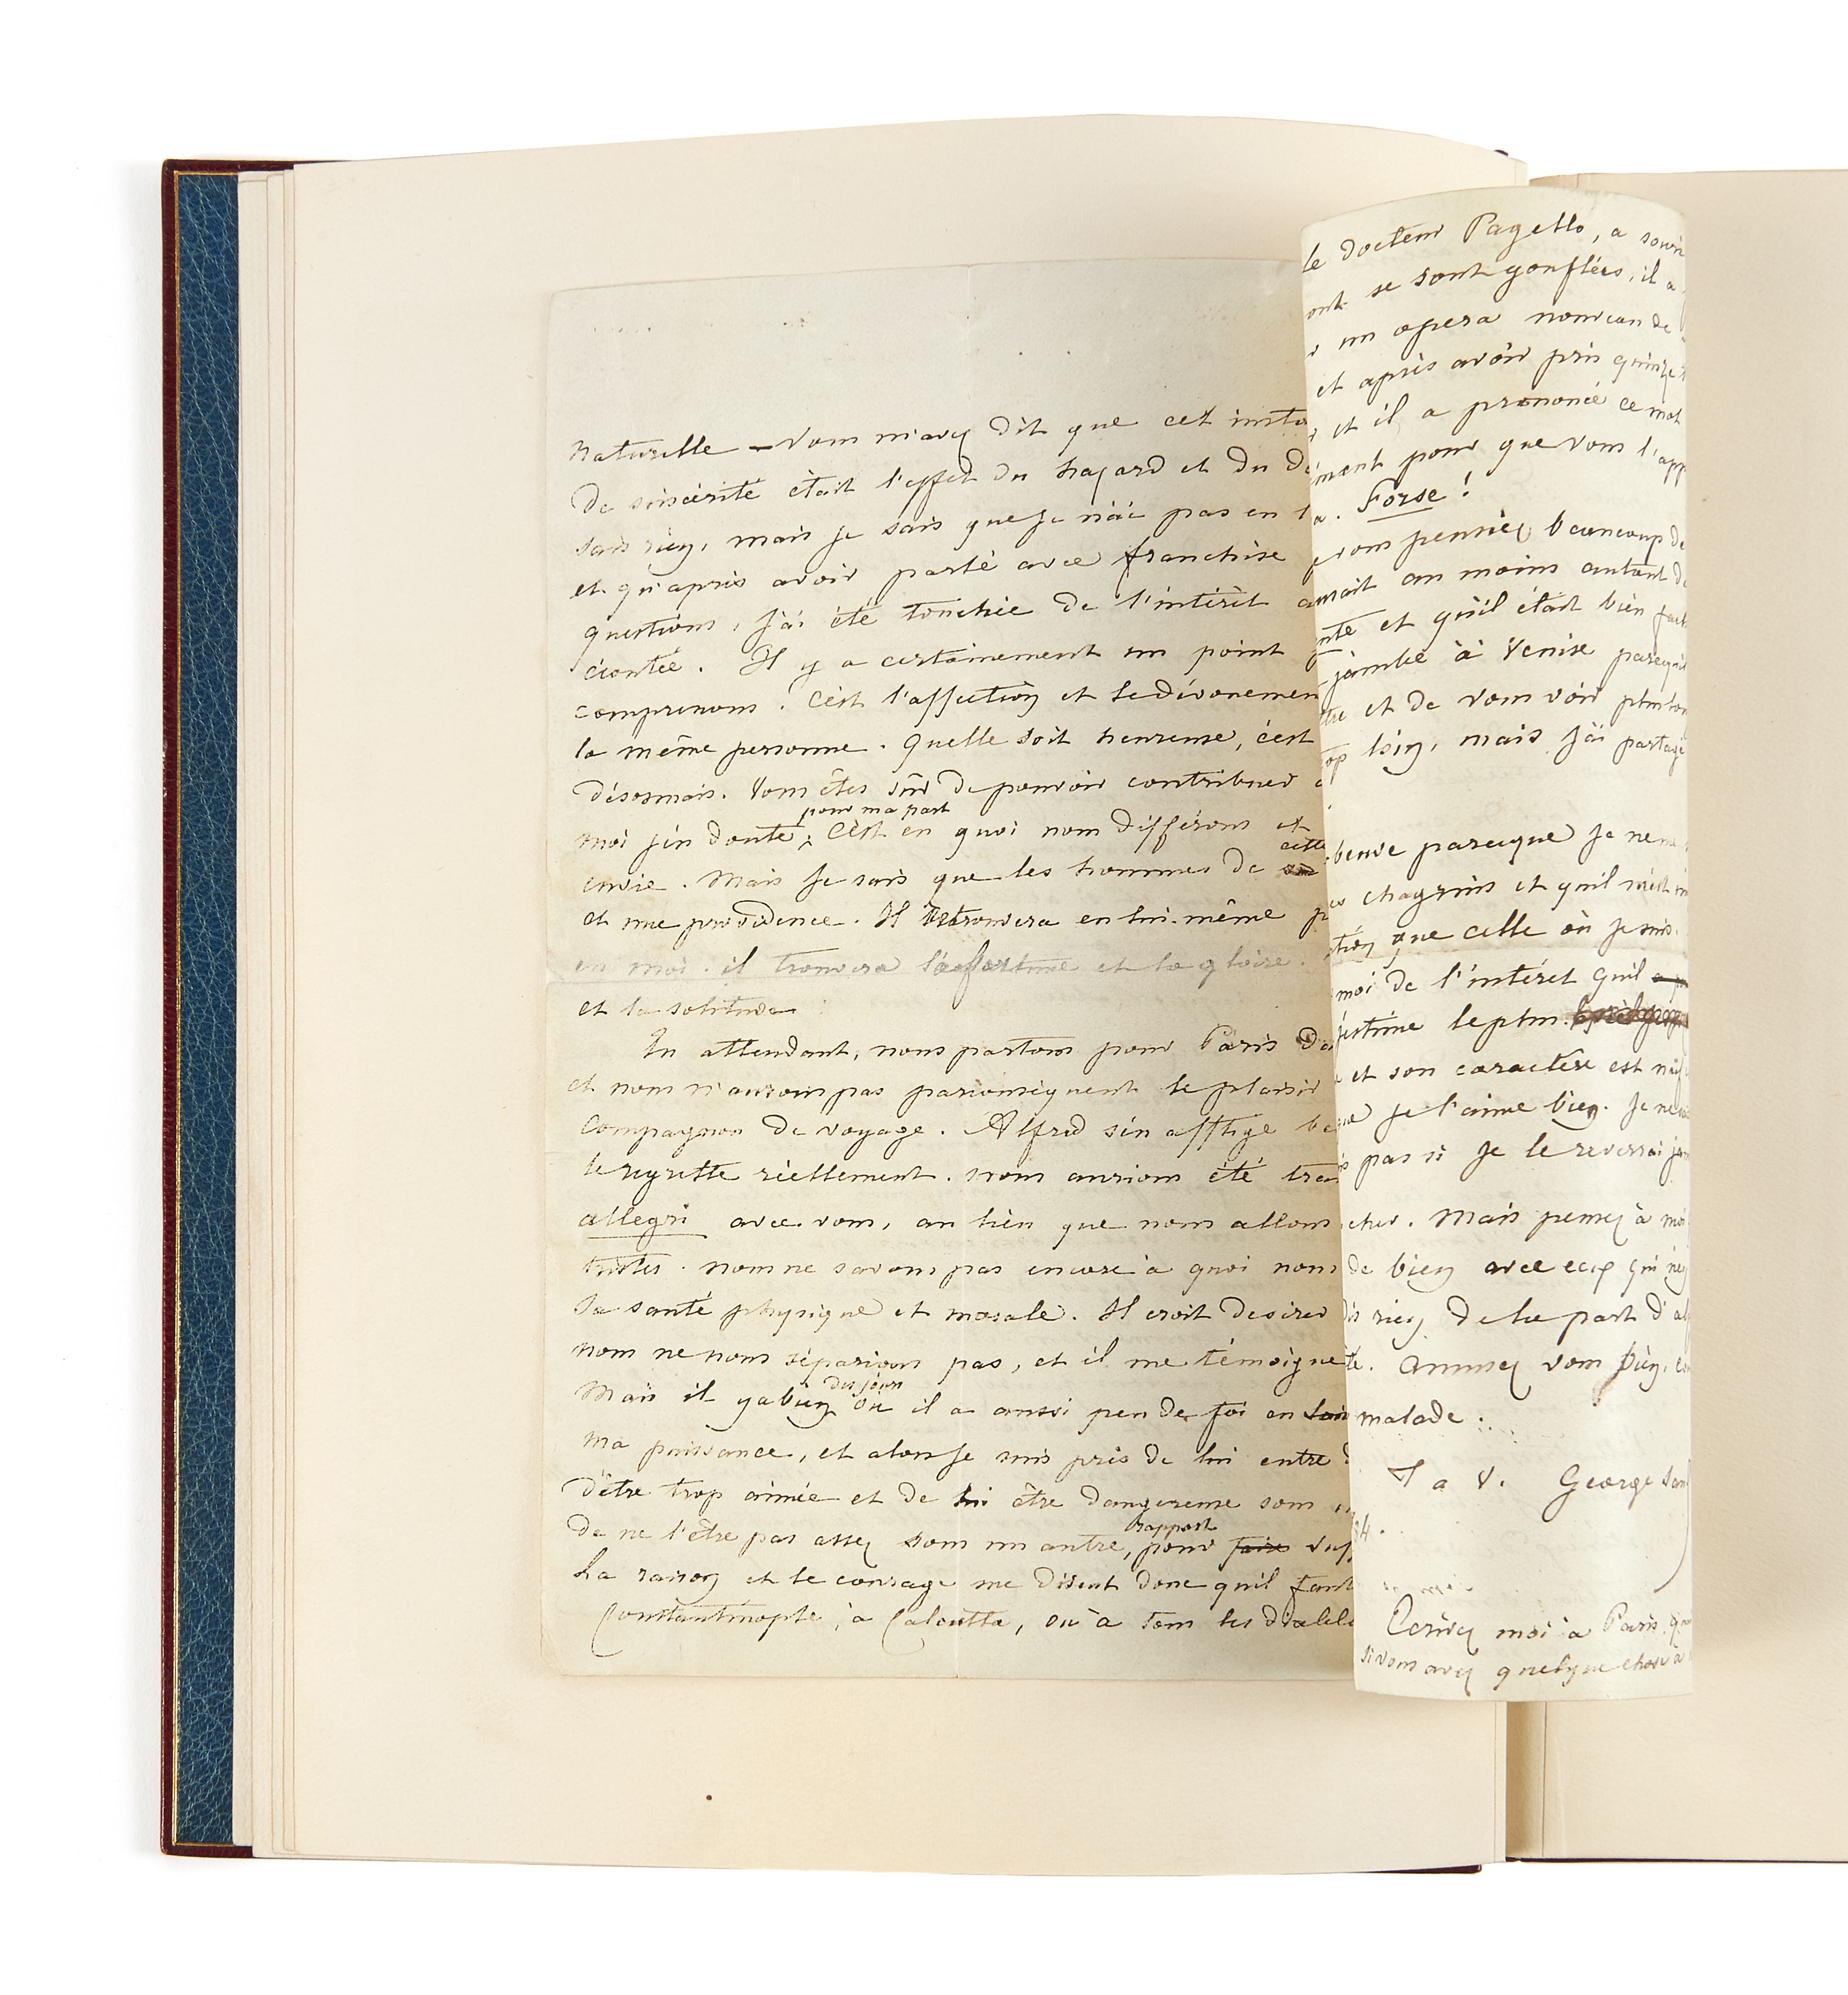 naturelle – Vous m'avez dit que cet insta
de sincérité était l'effet du hazard et du dé
sais rien, mais je sais que je n'ai pas en
et qu'après avoir parlé avec franchise
questions, j'ai été touchée de l'intérêt a
écoutée. Il y a certainement un point
comprenons. C'est l'affection et le dévouemen
la même personne. Quelle soit heureuse, c'est
désormais. Vous êtes sûr de pouvoir contribuer
pour ma part
moi j'en doute, C'est en quoi nous différons et
cette
envie. Mais je sais que les hommes de
et une providence. Il retrouvera en lui-même
en moi. il trouvera la fortune et la gloire.
et la solitude
En attendant, nous partons pour Paris da
et nous n'aurons pas parconséquent le plaisir
compagnon de voyage. Alfred s'en afflige
le regrette réellement. nous aurions été tran
allegri avec vous, au lieu que nous allons
tristes. nous ne savons pas encore à quoi nous
sa santé physique et morale. Il croit desirer
nous ne nous séparions pas, et il me témoigne
des jours
Mais il y a bien où il a aussi peu de foi en
ma puissance, et alors je suis près de lui entre
d'être trop aimée et de lui être dangereuse sous
rapport
de ne l'être pas assez sous un autre, pour faire
La raison et le courage me disent donc qu'il faut
Constantinople, à Calcutta, ou à tous les diable
le docteur Pagello, a sour
ont se sont gonflées, il a
un opera nouveau de
et après avoir pris quinze
et il a prononcé ce mot
ment pour que vous l'app
a. Forse!
vous pensiez beaucoup de
avait au moins autant de
nté et qu'il était bien fach
jambe à Venise parcequ'il
tre et de vous voir plus lon
op loin, mais j'ai partagé
parceque je ne me
chagrins et qu'il m'est im
tion que celle où je suis.
moi de l'intéret qu'il
j'estime le plus.
et son caractere est
je l'aime bien. Je ne
pas si je le reverrai jam
cher. Mais pensez à moi
de bien avec ceux qui n'en
dis rien de la part d'al
te. amusez vous bien,
malade.
T a V. George Sand
34.
Ecrivez moi à Paris, q
si vous avez quelque chose à